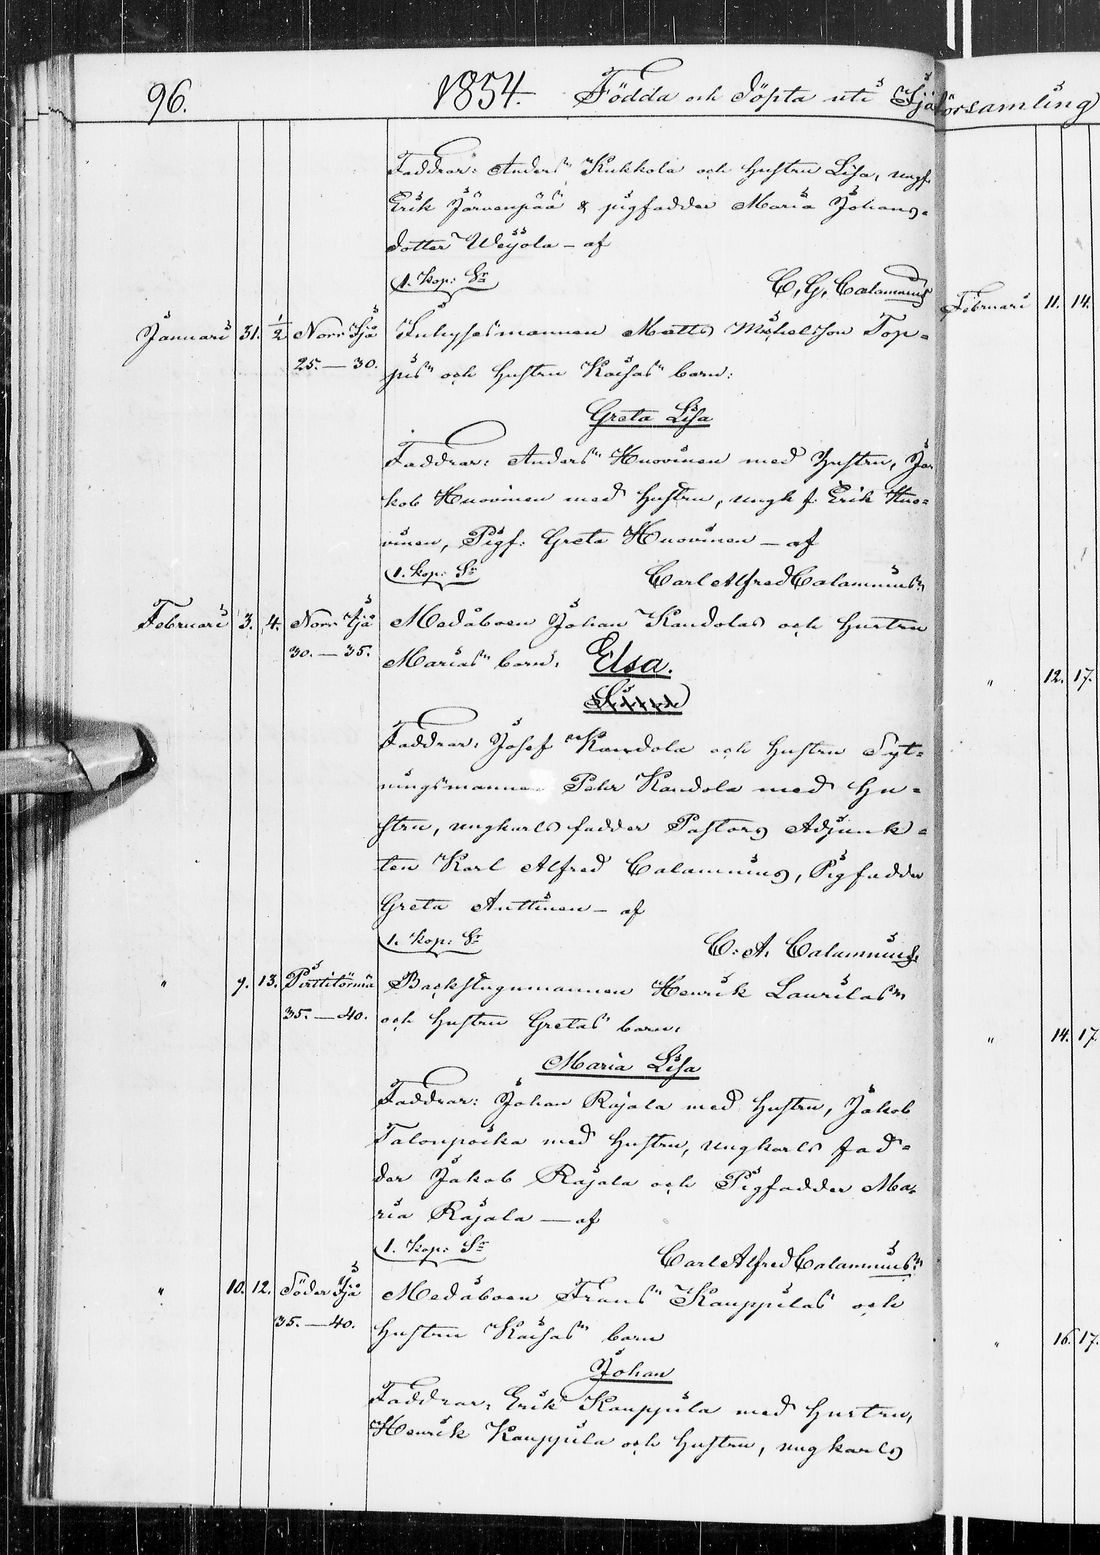 96. 1854. Födda och döpta uti Sjä
Faddrar: Anders Kukkola och hustru Lisa, ungk.
Erik Järvenpää & pigfadder Maria Johans-
dotter Weijola – af
1. kop: Sr C. G. Calamnius
Januari 31. 1/2 Norr Sjä Inhysesmannen Matts Michelsson Top-
25.–30. pis och hustru Kaisas barn:
Greta Lisa
Faddrar: Anders Huovinen med hustru, Ja-
kob Huovinen med hustru, ungk f. Erik Huo-
vinen, Pigf: Greta Huovinen – af
1. kop: Sr Carl Alfred Calamnius
Februari 3. 4. Norr Sjä Medåboen Johan Kandolas och hustru
30.–35. Marias barn: Elsa.
Faddrar: Josef Kandola och hustru Syt-
ningsmannen Pehr Kandola med hu-
stru, ungkarls fadder Pastors Adjunk-
ten Karl Alfred Calamnius, Pigfadder
Greta Anttinen – af
1. kop: Sr C. A. Calamnius
" 9. 13. Pirttitörmä Backstugumannen Henrik Laurilas
35.–40. och hustru Gretas barn:
Maria Lisa
Faddrar: Johan Rajala med hustru, Jakob
Talonpoika med hustru, ungkarls fad-
der Jakob Rajala och Pigfadder Ma-
ria Rajala – af
1. kop: Sr Carl Alfred Calamnius
" 10. 12. Söder Sjä Medåboen Frans Kauppilas och
35.–40. hustru Kaisas barn
Johan
Faddrar: Erik Kauppila med hustru,
Henrik Kauppila och hustru, ungkarls
församling
Februari 11. 14.
" 12. 17.
" 14. 17
" 16. 17.